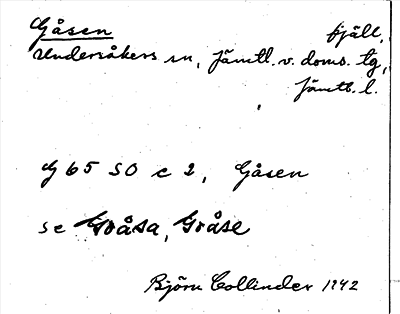 Gåsen fjäll,
Undersåkers sn, Jämtl. v. doms. tg,
Jämtl. l.
G 65 SO c 2, Gåsen
se Gråsa, Gråse
Björn Collinder 1942